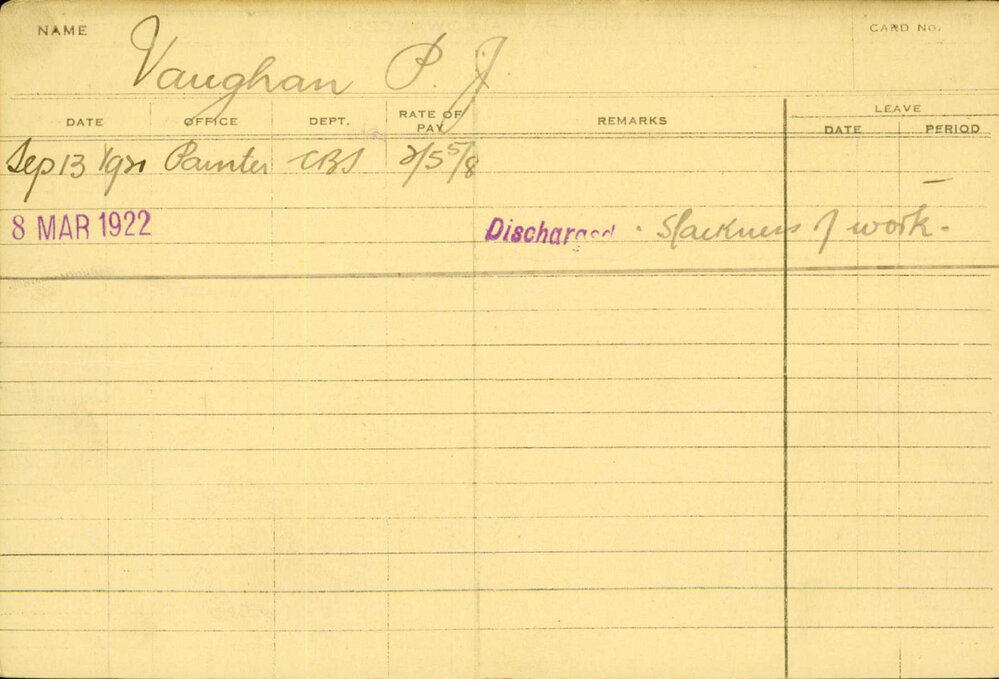 NAME Vaughan P. J CARD NO.
DATE OFFICE DEPT. RATE OF PAY REMARKS LEAVE
DATE PERIOD
Sep 13 1921 Painter CBS 2/5 5/8
8 MAR 1922 Discharged . Slackness of work -